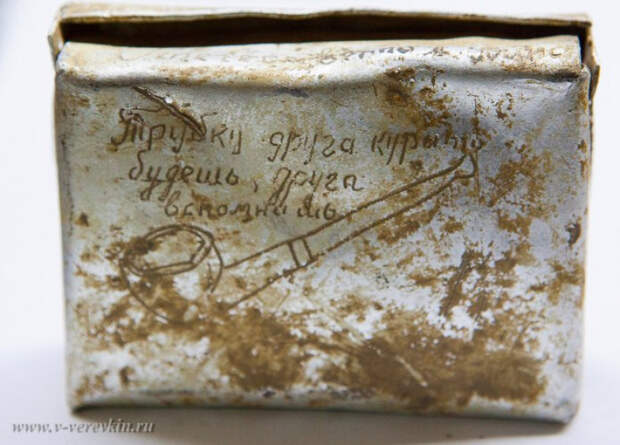 Трубку друга курить
будешь, друга
вспомнишь
www.v-verevkin.ru